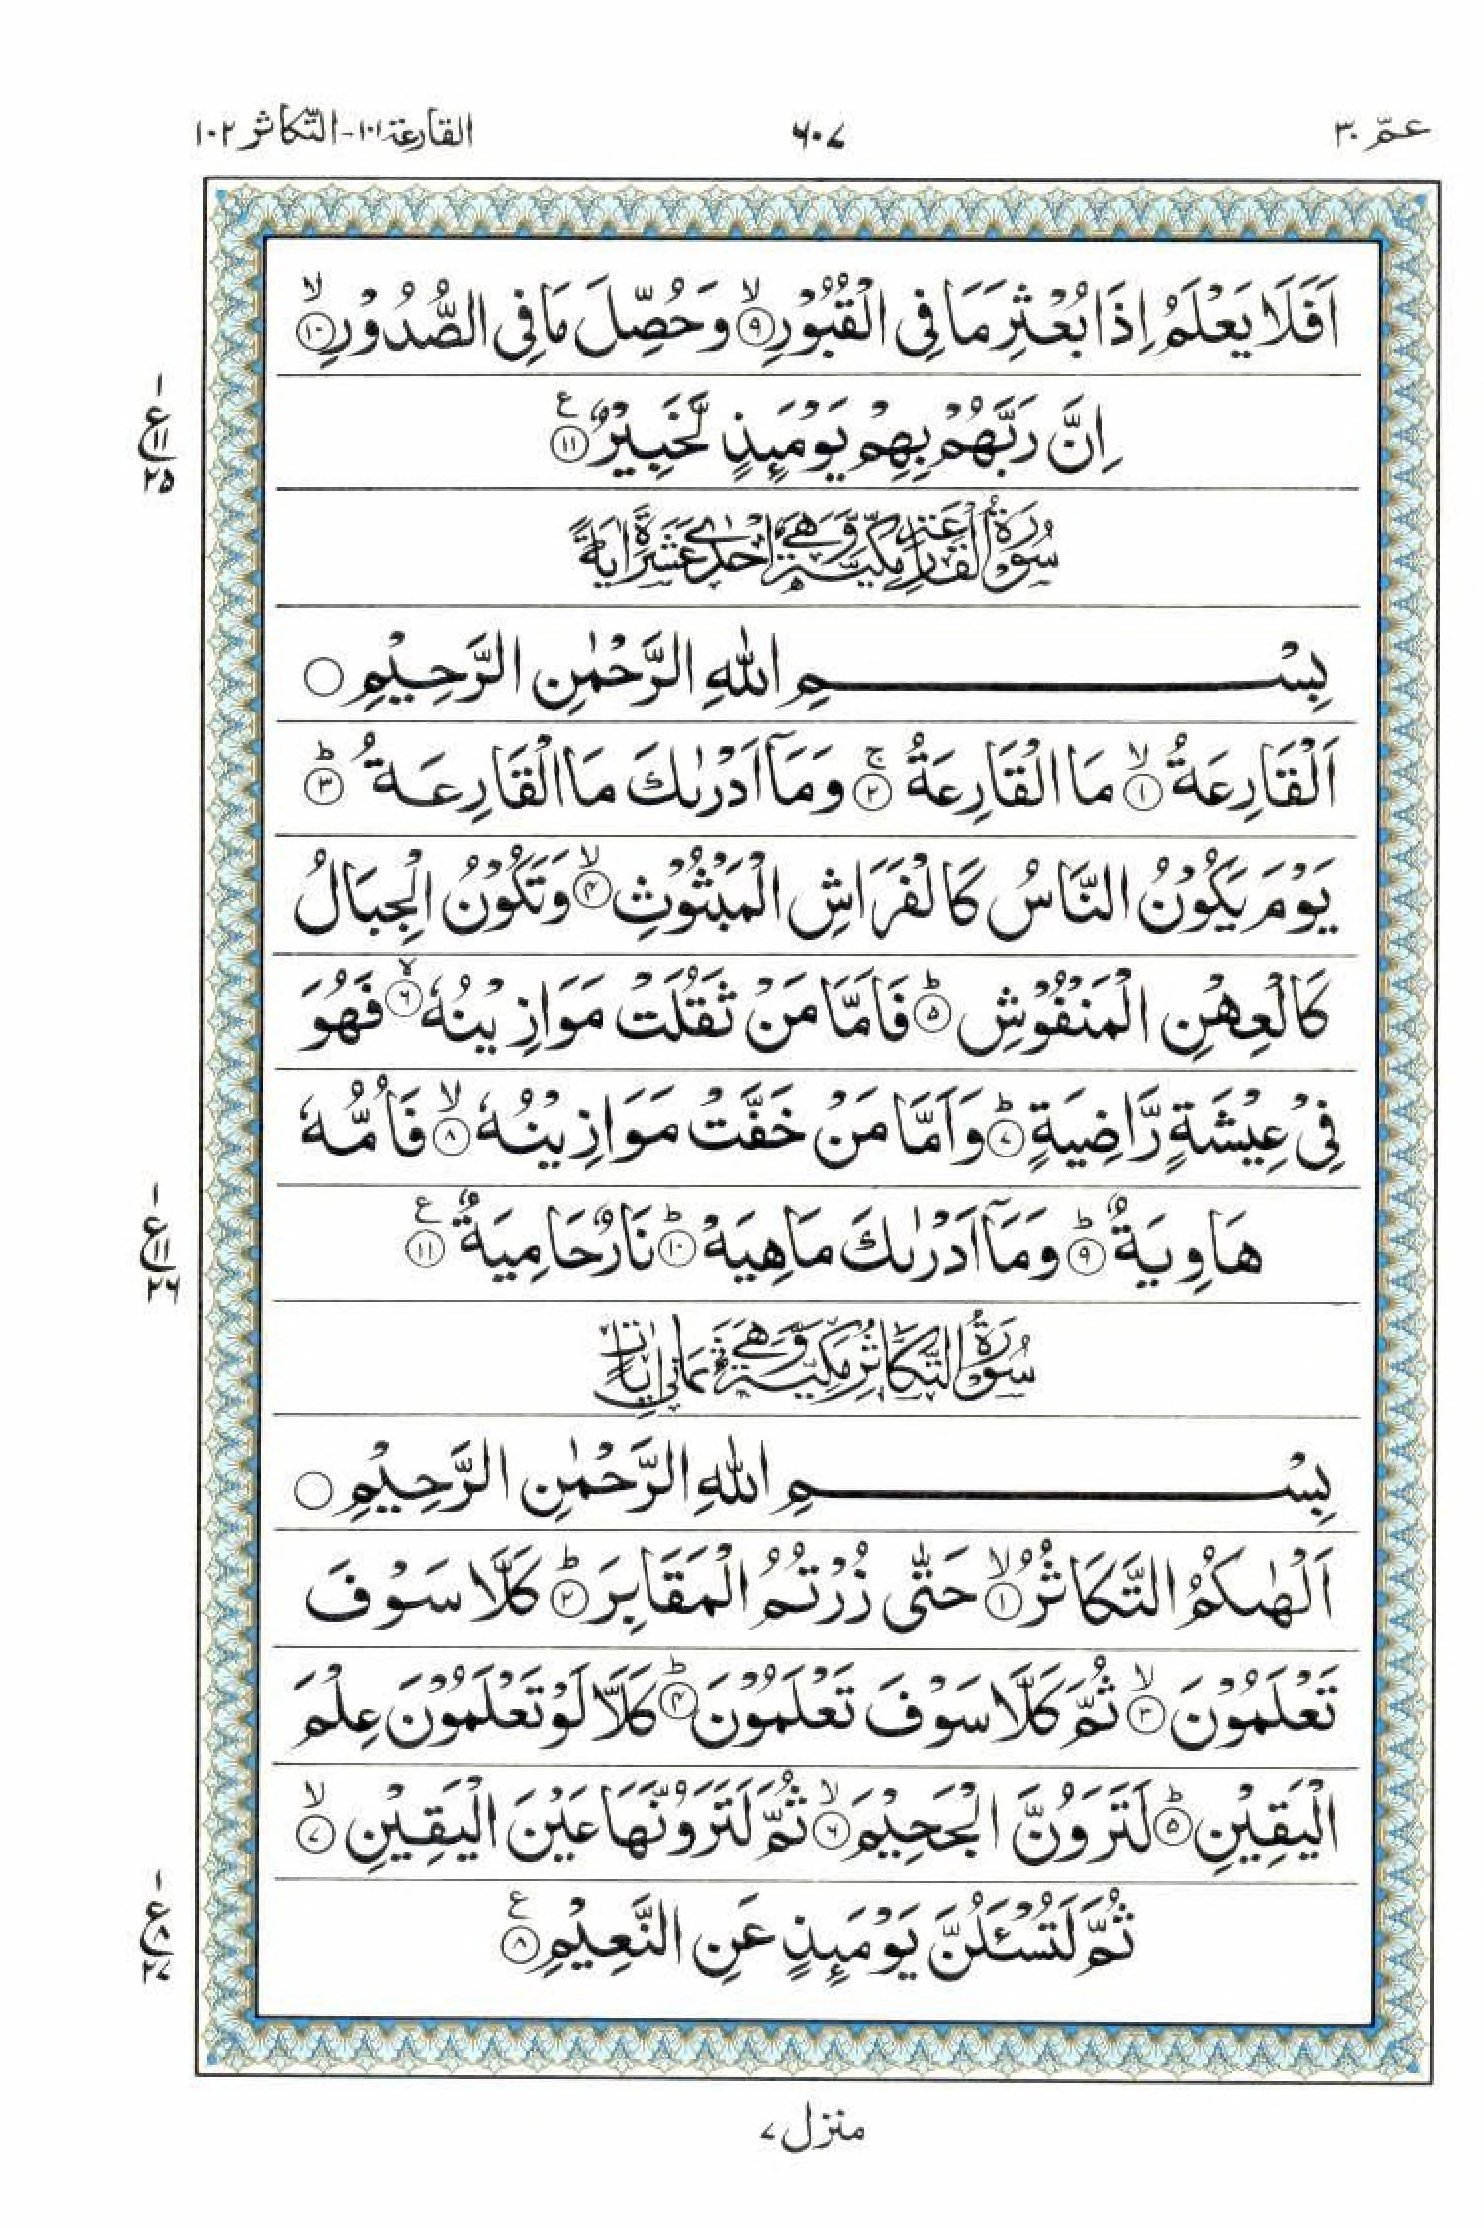 عمّ ٣٠
٦٠٧
القارعة ١٠١ - التّكاثر ١٠٢
اَفَلَا يَعْلَمُ اِذَا بُعْثِرَ مَا فِي الْقُبُوْرِ ۙ﴿٩﴾ وَحُصِّلَ مَا فِي الصُّدُوْرِ ۙ﴿١٠﴾
اِنَّ رَبَّهُمْ بِهِمْ يَوْمَئِذٍ لَّخَبِيْرٌ ﴿١١﴾ ع
١ ع ١١ ٢٥
سُوْرَةُ الْقَارِعَةِ مَكِّيَّةٌ وَّهِيَ اِحْدٰى عَشْرَةَ اٰيَةً
بِسْمِ اللهِ الرَّحْمٰنِ الرَّحِيْمِ
اَلْقَارِعَةُ ۙ﴿١﴾ مَا الْقَارِعَةُ ۚ﴿٢﴾ وَمَآ اَدْرٰىكَ مَا الْقَارِعَةُ ؕ﴿٣﴾
يَوْمَ يَكُوْنُ النَّاسُ كَالْفَرَاشِ الْمَبْثُوْثِ ۙ﴿٤﴾ وَتَكُوْنُ الْجِبَالُ
كَالْعِهْنِ الْمَنْفُوْشِ ؕ﴿٥﴾ فَاَمَّا مَنْ ثَقُلَتْ مَوَازِيْنُهٗ ۙ﴿٦﴾ فَهُوَ
فِيْ عِيْشَةٍ رَّاضِيَةٍ ؕ﴿٧﴾ وَاَمَّا مَنْ خَفَّتْ مَوَازِيْنُهٗ ۙ﴿٨﴾ فَاُمُّهٗ
هَاوِيَةٌ ؕ﴿٩﴾ وَمَآ اَدْرٰىكَ مَاهِيَهْ ؕ﴿١٠﴾ نَارٌ حَامِيَةٌ ﴿١١﴾ ع
١ ع ١١ ٢٦
سُوْرَةُ التَّكَاثُرِ مَكِّيَّةٌ وَّهِيَ ثَمَانِيْ اٰيَاتٍ
بِسْمِ اللهِ الرَّحْمٰنِ الرَّحِيْمِ
اَلْهٰىكُمُ التَّكَاثُرُ ۙ﴿١﴾ حَتّٰى زُرْتُمُ الْمَقَابِرَ ؕ﴿٢﴾ كَلَّا سَوْفَ
تَعْلَمُوْنَ ۙ﴿٣﴾ ثُمَّ كَلَّا سَوْفَ تَعْلَمُوْنَ ؕ﴿٤﴾ كَلَّا لَوْ تَعْلَمُوْنَ عِلْمَ
الْيَقِيْنِ ؕ﴿٥﴾ لَتَرَوُنَّ الْجَحِيْمَ ۙ﴿٦﴾ ثُمَّ لَتَرَوُنَّهَا عَيْنَ الْيَقِيْنِ ۙ﴿٧﴾
ثُمَّ لَتُسْئَلُنَّ يَوْمَئِذٍ عَنِ النَّعِيْمِ ﴿٨﴾ ع
١ ع ٨ ٢٧
منزل ٧